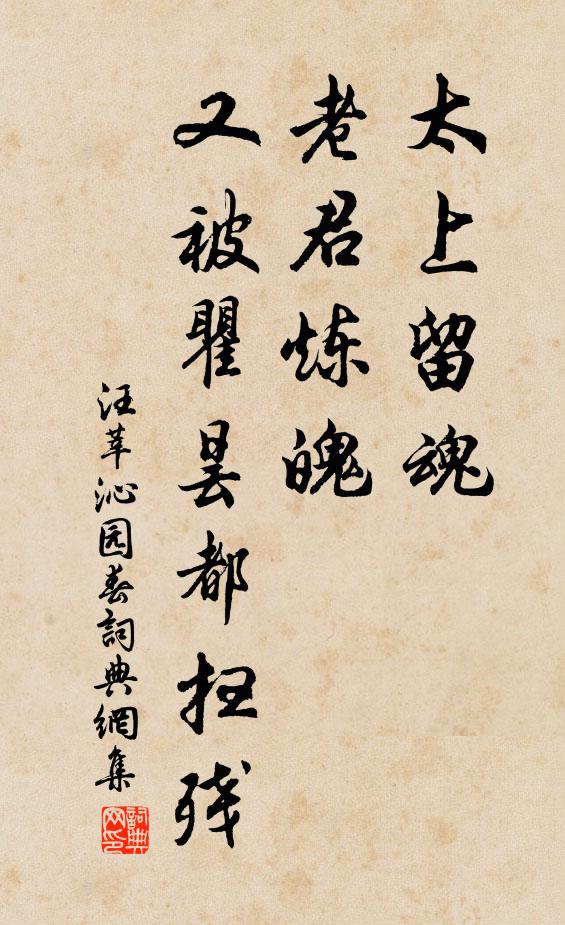 太上留魂
老君炼魄
又被瞿昙都扫残
汪莘沁园春詞典網集
詞典
网印